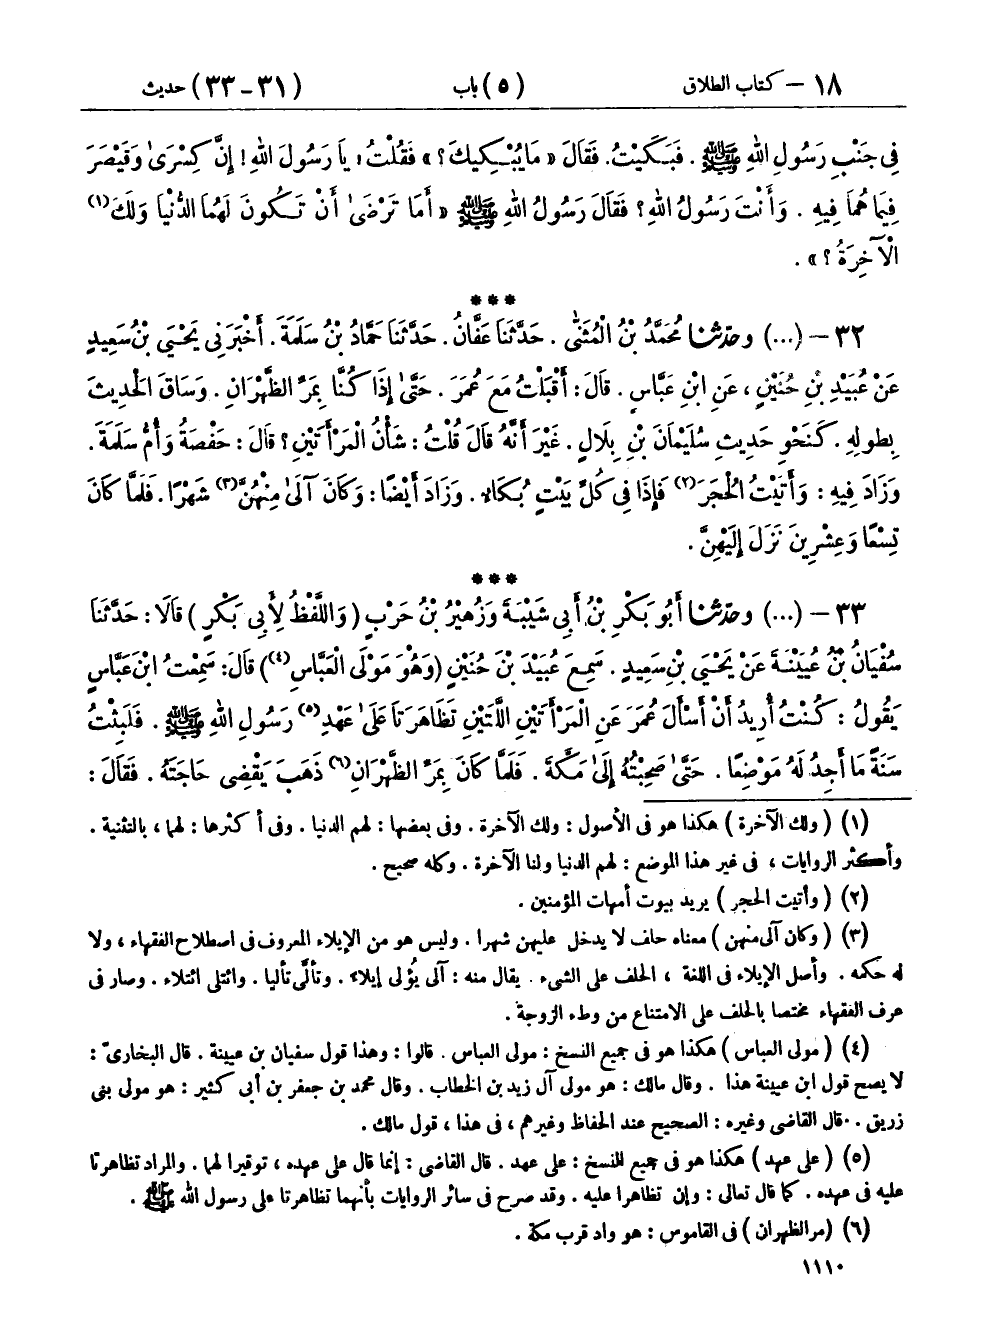 ١٨ – كتاب الطلاق (٥) باب (٣١ – ٣٣) حديث
فِي جَنْبِ رَسُولِ اللهِ ﷺ . فَبَكَيْتُ. فَقَالَ « مَا يُبْكِيكَ؟ » فَقُلْتُ: يَا رَسُولَ اللهِ! إِنَّ كِسْرَىٰ وَقَيْصَرَ
فِيمَا هُمَا فِيهِ . وَأَنْتَ رَسُولُ اللهِ؟ فَقَالَ رَسُولُ اللهِ ﷺ « أَمَا تَرْضَىٰ أَنْ تَكُونَ لَهُمَا الدُّنْيَا وَلَكَ(١)
الْآخِرَةُ؟ » .
***
٣٢ – (...) وحدّثنا مُحَمَّدُ بْنُ الْمُثَنَّىٰ . حَدَّثَنَا عَفَّانُ. حَدَّثَنَا حَمَّادُ بْنُ سَلَمَةَ. أَخْبَرَنِي يَحْيَىٰ بْنُ سَعِيدٍ
عَنْ عُبَيْدِ بْنِ حُنَيْنٍ ، عَنِ ابْنِ عَبَّاسٍ . قَالَ: أَقْبَلْتُ مَعَ عُمَرَ . حَتَّىٰ إِذَا كُنَّا بِمَرِّ الظَّهْرَانِ . وَسَاقَ الْحَدِيثَ
بِطُولِهِ . كَنَحْوِ حَدِيثِ سُلَيْمَانَ بْنِ بِلَالٍ . غَيْرَ أَنَّهُ قَالَ قُلْتُ : شَأْنُ الْمَرْأَتَيْنِ ؟ قَالَ : حَفْصَةُ وَأُمُّ سَلَمَةَ.
وَزَادَ فِيهِ : وَأَتَيْتُ الْحُجَرَ(٢) فَإِذَا فِي كُلِّ بَيْتٍ بُكَاءٌ . وَزَادَ أَيْضًا: وَكَانَ آلَىٰ مِنْهُنَّ(٣) شَهْرًا. فَلَمَّا كَانَ
تِسْعًا وَعِشْرِينَ نَزَلَ إِلَيْهِنَّ .
***
٣٣ – (...) وحدّثنا أَبُو بَكْرِ بْنُ أَبِي شَيْبَةَ وَزُهَيْرُ بْنُ حَرْبٍ ( وَاللَّفْظُ لِأَبِي بَكْرٍ ) قَالَا: حَدَّثَنَا
سُفْيَانُ بْنُ عُيَيْنَةَ عَنْ يَحْيَىٰ بْنِ سَعِيدٍ . سَمِعَ عُبَيْدَ بْنَ حُنَيْنٍ (وَهُوَ مَوْلَى الْعَبَّاسِ(٤)) قَالَ: سَمِعْتُ ابْنَ عَبَّاسٍ
يَقُولُ : كُنْتُ أُرِيدُ أَنْ أَسْأَلَ عُمَرَ عَنِ الْمَرْأَتَيْنِ اللَّتَيْنِ تَظَاهَرَتَا عَلَىٰ عَهْدِ(٥) رَسُولِ اللهِ ﷺ . فَلَبِثْتُ
سَنَةً مَا أَجِدُ لَهُ مَوْضِعًا . حَتَّىٰ صَحِبْتُهُ إِلَىٰ مَكَّةَ . فَلَمَّا كَانَ بِمَرِّ الظَّهْرَانِ(٦) ذَهَبَ يَقْضِي حَاجَتَهُ . فَقَالَ :
(١) ( ولك الآخرة ) هكذا هو في الأصول : ولك الآخرة . وفي بعضها : لهم الدنيا . وفي أكثرها : لهما ، بالتثنية .
وأكثر الروايات ، في غير هذا الموضع : لهم الدنيا ولنا الآخرة . وكله صحيح .
(٢) ( وأتيت الحجر ) يريد بيوت أمهات المؤمنين .
(٣) ( وكان آلى منهن ) معناه حلف لا يدخل عليهن شهرا . وليس هو من الإيلاء المعروف في اصطلاح الفقهاء ، ولا
له حكمه . وأصل الإيلاء في اللغة ، الحلف على الشيء . يقال منه : آلى يُؤْلى إيلاء . وتألّى تأليا . وائتلى ائتلاء . وصار في
عرف الفقهاء مختصا بالحلف على الامتناع من وطء الزوجة .
(٤) ( مولى العباس ) هكذا هو في جميع النسخ : مولى العباس . قالوا : وهذا قول سفيان بن عيينة . قال البخاريّ :
لا يصح قول ابن عيينة هذا . وقال مالك : هو مولى آل زيد بن الخطاب . وقال محمد بن جعفر بن أبي كثير : هو مولى بنى
زريق . قال القاضي وغيره : الصحيح عند الحفاظ وغيرهم ، في هذا ، قول مالك .
(٥) ( على عهد ) هكذا هو في جميع النسخ : على عهد . قال القاضي : إنما قال على عهده ، توقيرا لهما . والمراد تظاهرتا
عليه في عهده . كما قال تعالى : وإن تظاهرا عليه . وقد صرح في سائر الروايات بأنهما تظاهرتا على رسول الله ﷺ .
(٦) ( مر الظهران ) في القاموس : هو واد قرب مكة .
١١١٠